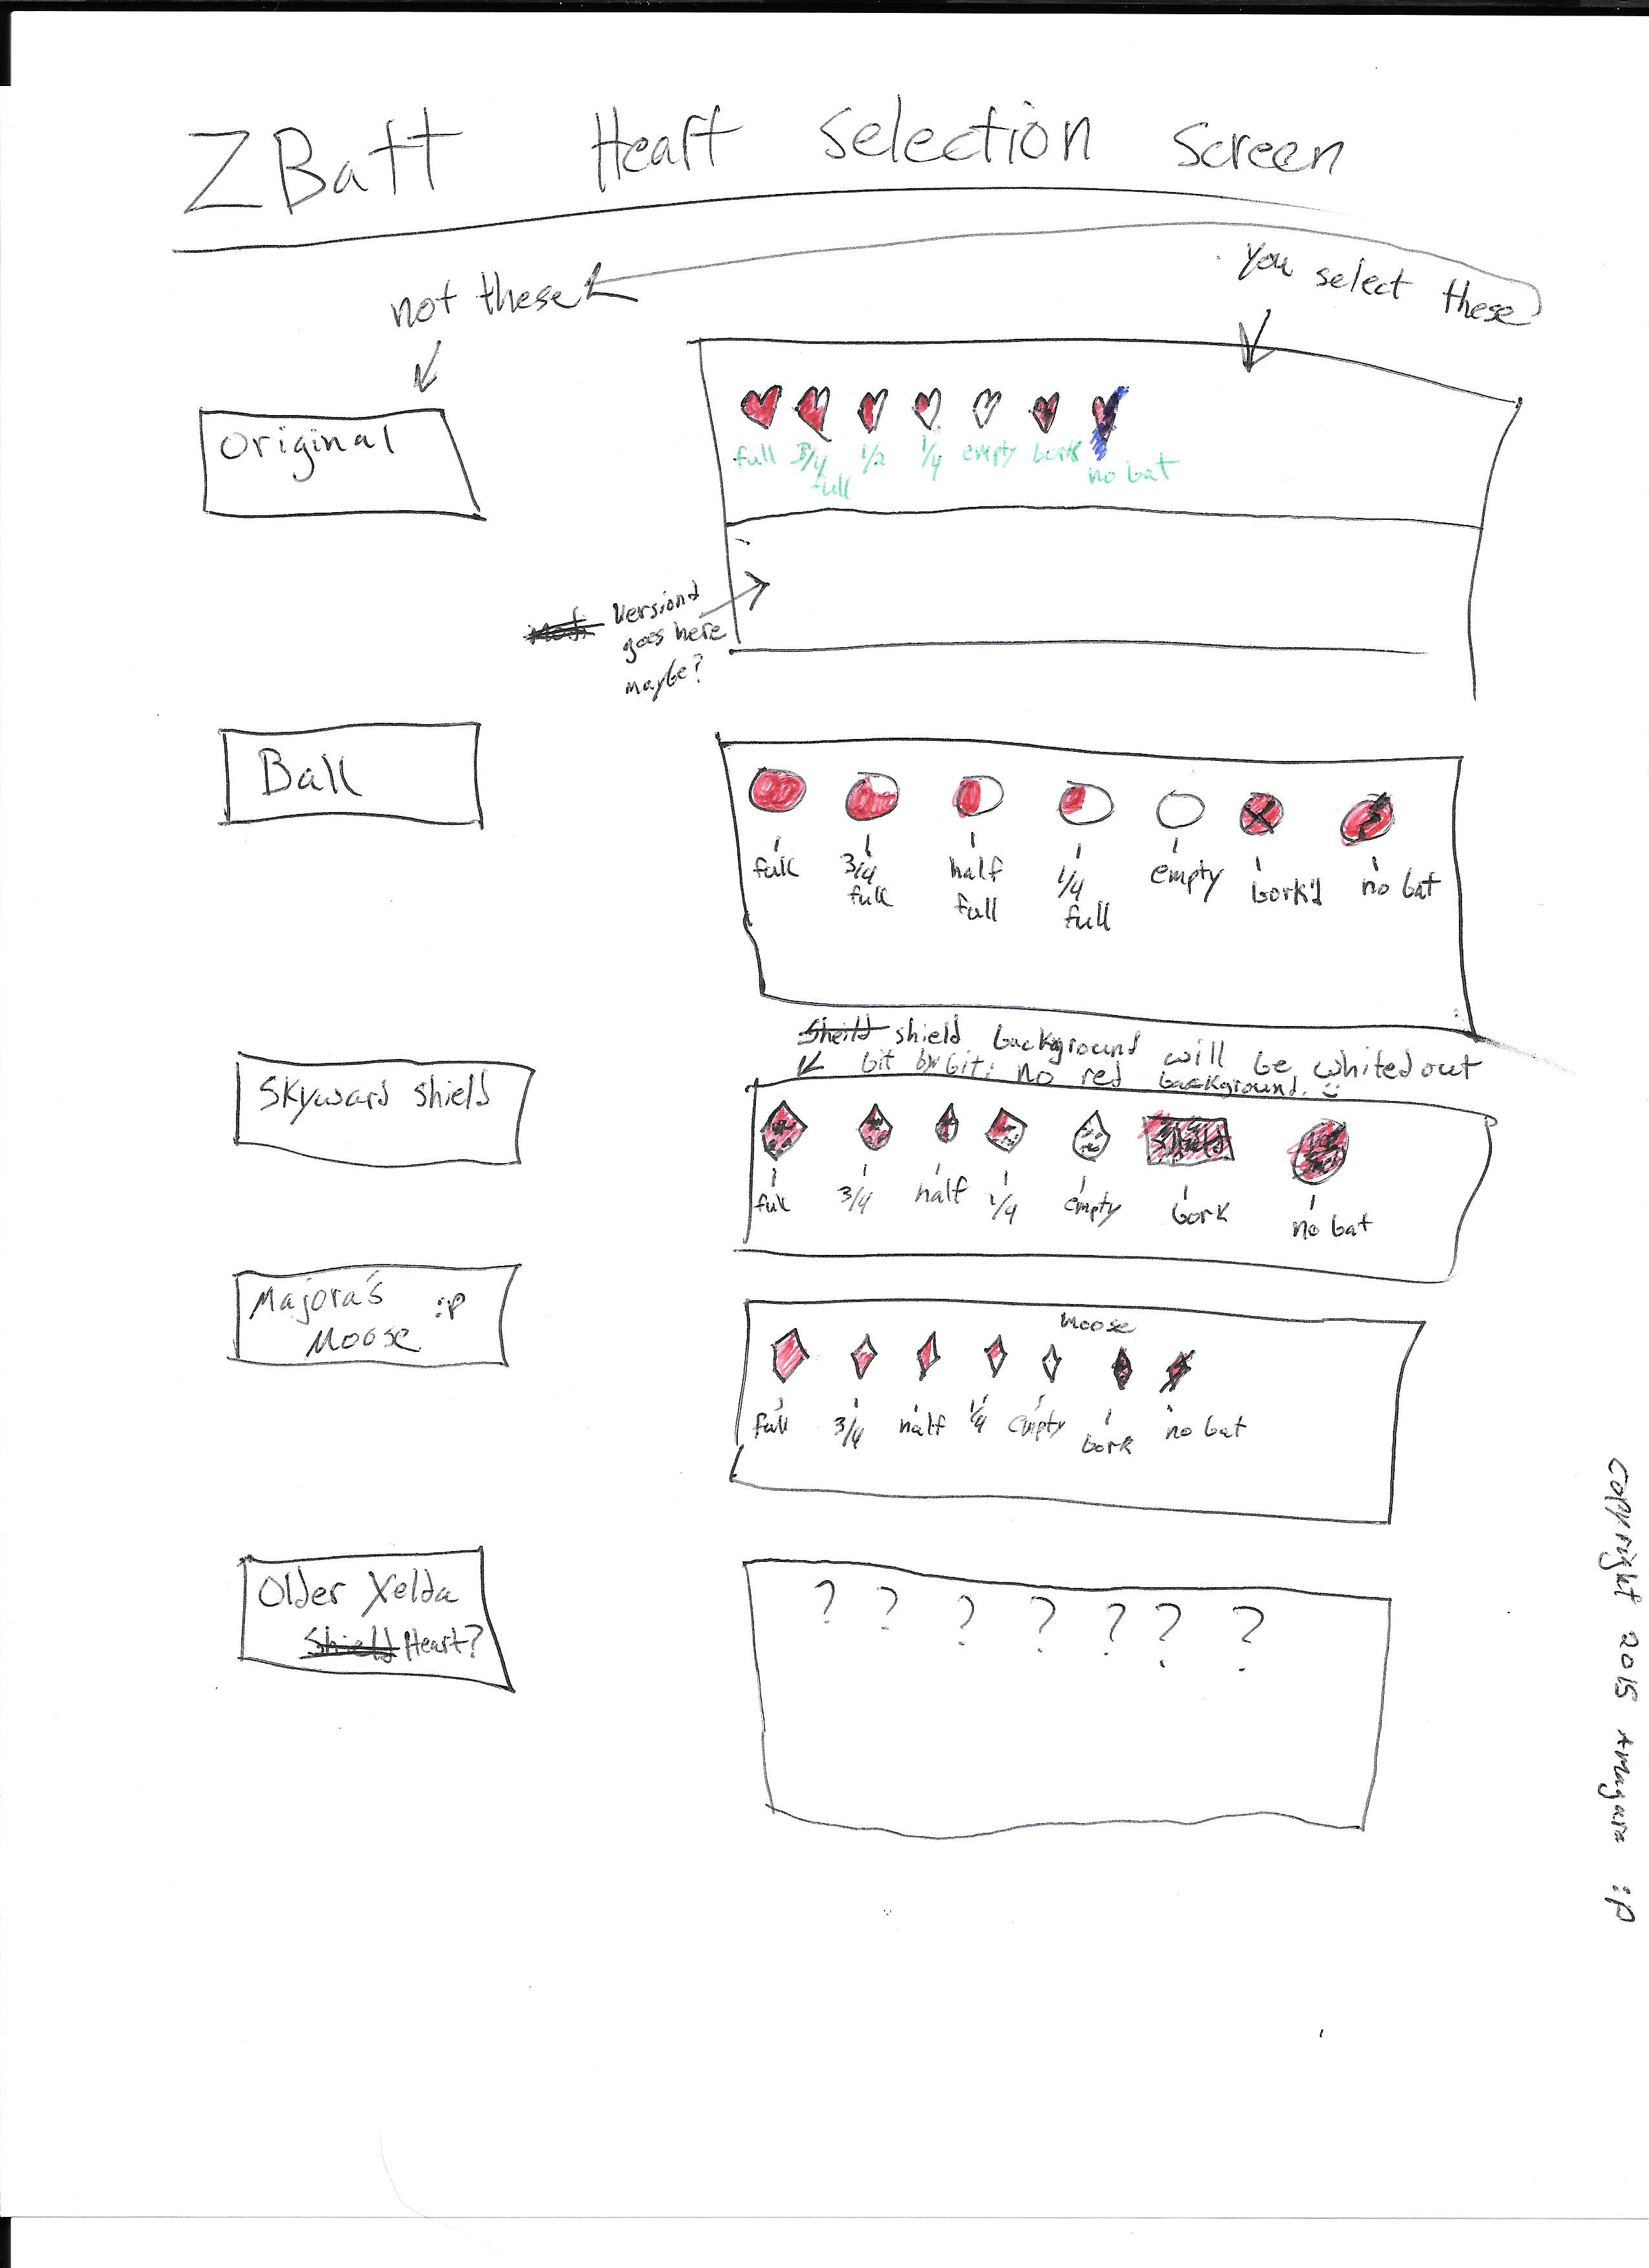 ZBatt Heart Selection Screen
not these
you select these
Original
full 3/4 1/2 1/4 empty bork
full
no bat
Versiond
goes here
maybe?
Ball
full 3/4 half 1/4 empty bork'd no bat
full full full
Sheild shield background will be whited out
bit by bit; no red background. :)
Skyward shield
full 3/4 half 1/4 empty bork no bat
Majora's :P
Moose
Moose
full 3/4 half 1/4 empty bork no bat
Older Xelda
Shield Heart?
? ? ? ? ? ? ?
copyright 2015 Amagura :P